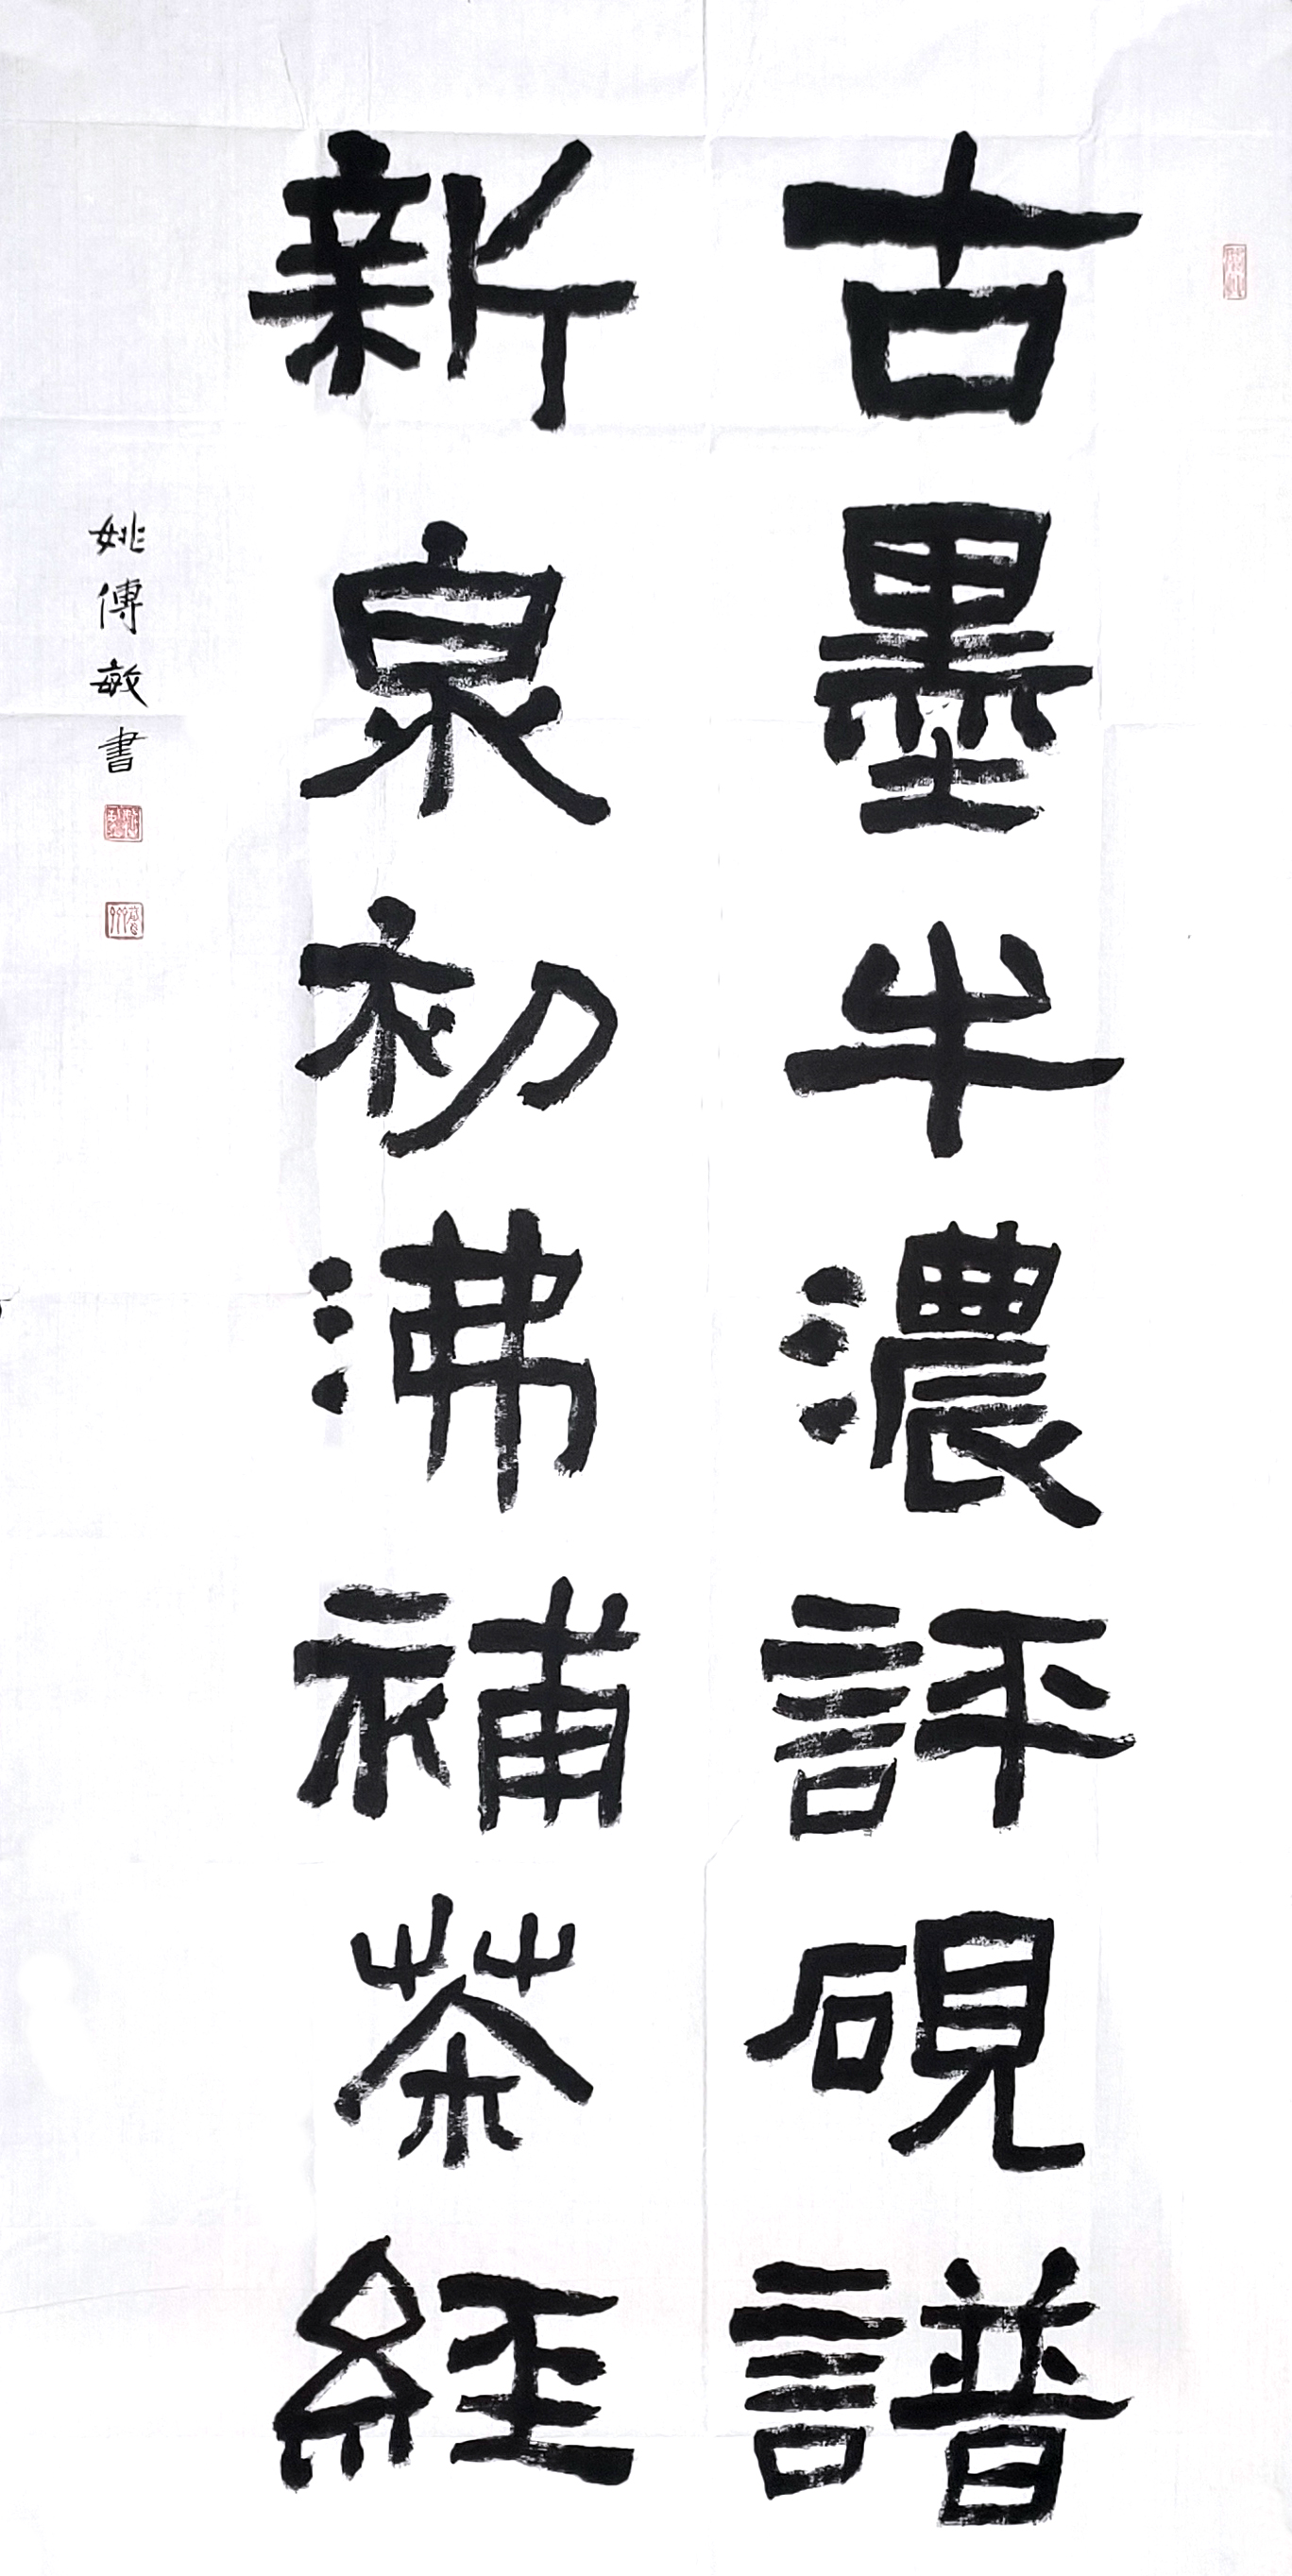 古墨半濃評硯譜
新泉初沸補茶經
姚傅敏書